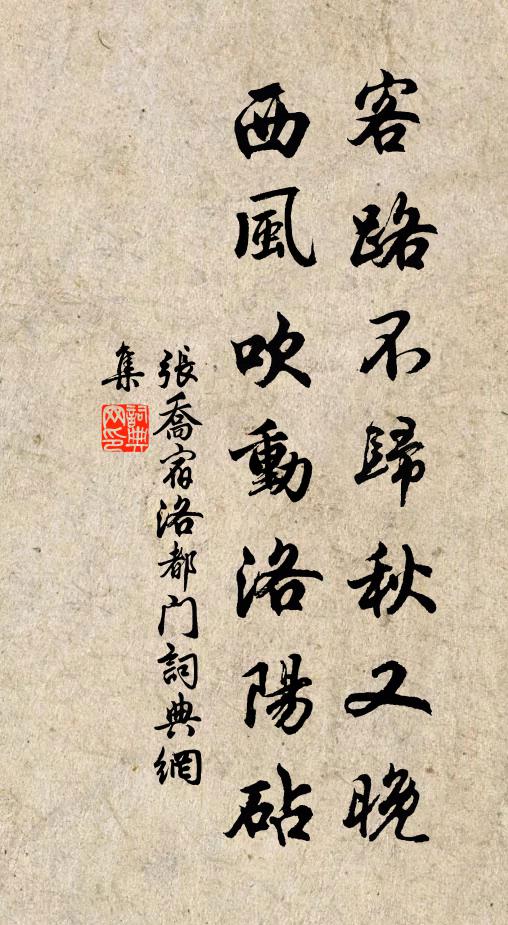 客路不歸秋又晚
西風吹動洛陽砧
張喬宿洛都門詞典網
集
詞典
网印